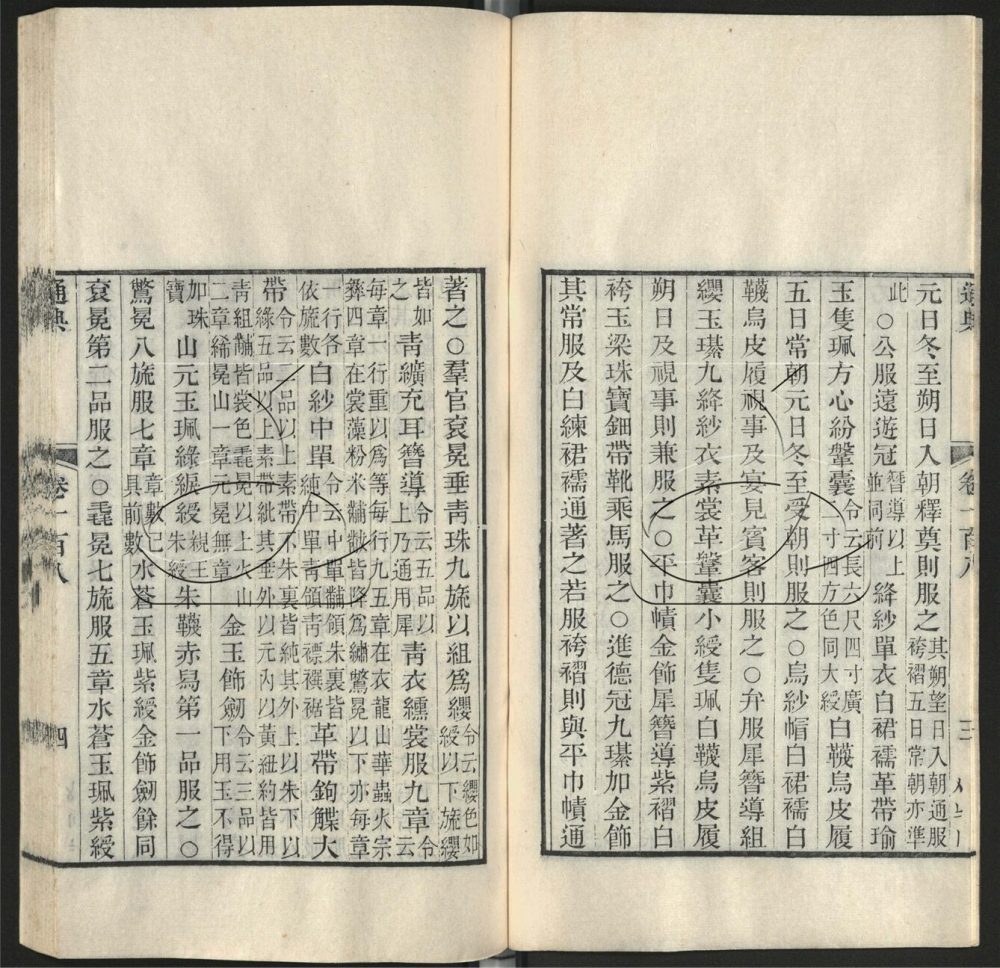 元日冬至朔日入朝釋奠則服之其朔望日入朝通服袴褶五日常朝亦準
此○公服遠遊冠簪導以上並同前絳紗單衣白裙襦革帶瑜
玉隻珮方心紛鞶囊令云長六尺四寸廣寸四方色同大綬白韈烏皮履
五日常朝元日冬至受朝則服之○烏紗帽白裙襦白
韈烏皮履視事及宴見賓客則服之○弁服犀簪導組
纓玉璂九絳紗衣素裳革鞶囊小綬隻珮白韈烏皮履
朔日及視事則兼服之○平巾幘金飾犀簪導紫褶白
袴玉梁珠寶鈿帶靴乘馬服之○進德冠九璂加金飾
其常服及白練裙襦通著之若服袴褶則與平巾幘通
通典
卷一百八
三
著之○羣官袞冕垂青珠九旒以組爲纓令云纓色如綬以下旒纓
皆如之青纊充耳簪導令云五品以上乃通用犀青衣纁裳服九章令云
每章一行重以爲等每行九五章在衣龍山華蟲火宗彝四章在裳藻粉米黼黻皆降爲繡鷩冕以下亦每章
一行各依旒數白紗中單令云中單黼領朱裏皆純中單青領青褾襈裾革帶鉤䚢大
帶令云二品以上素帶不朱裏皆純其外上以朱下以綠五品以上素帶紕其垂外以元內以黃紐約皆用
青組黼皆裳色毳冕以上火山二章絺冕山一章元冕無章金玉飾劒令云三品以下用玉不得
加珠寶山元玉珮綠綟綬親王朱綬朱韈赤舄第一品服之○
鷩冕八旒服七章章數已具前數水蒼玉珮紫綬金飾劒餘同
袞冕第二品服之○毳冕七旒服五章水蒼玉珮紫綬
通典
卷一百八
四